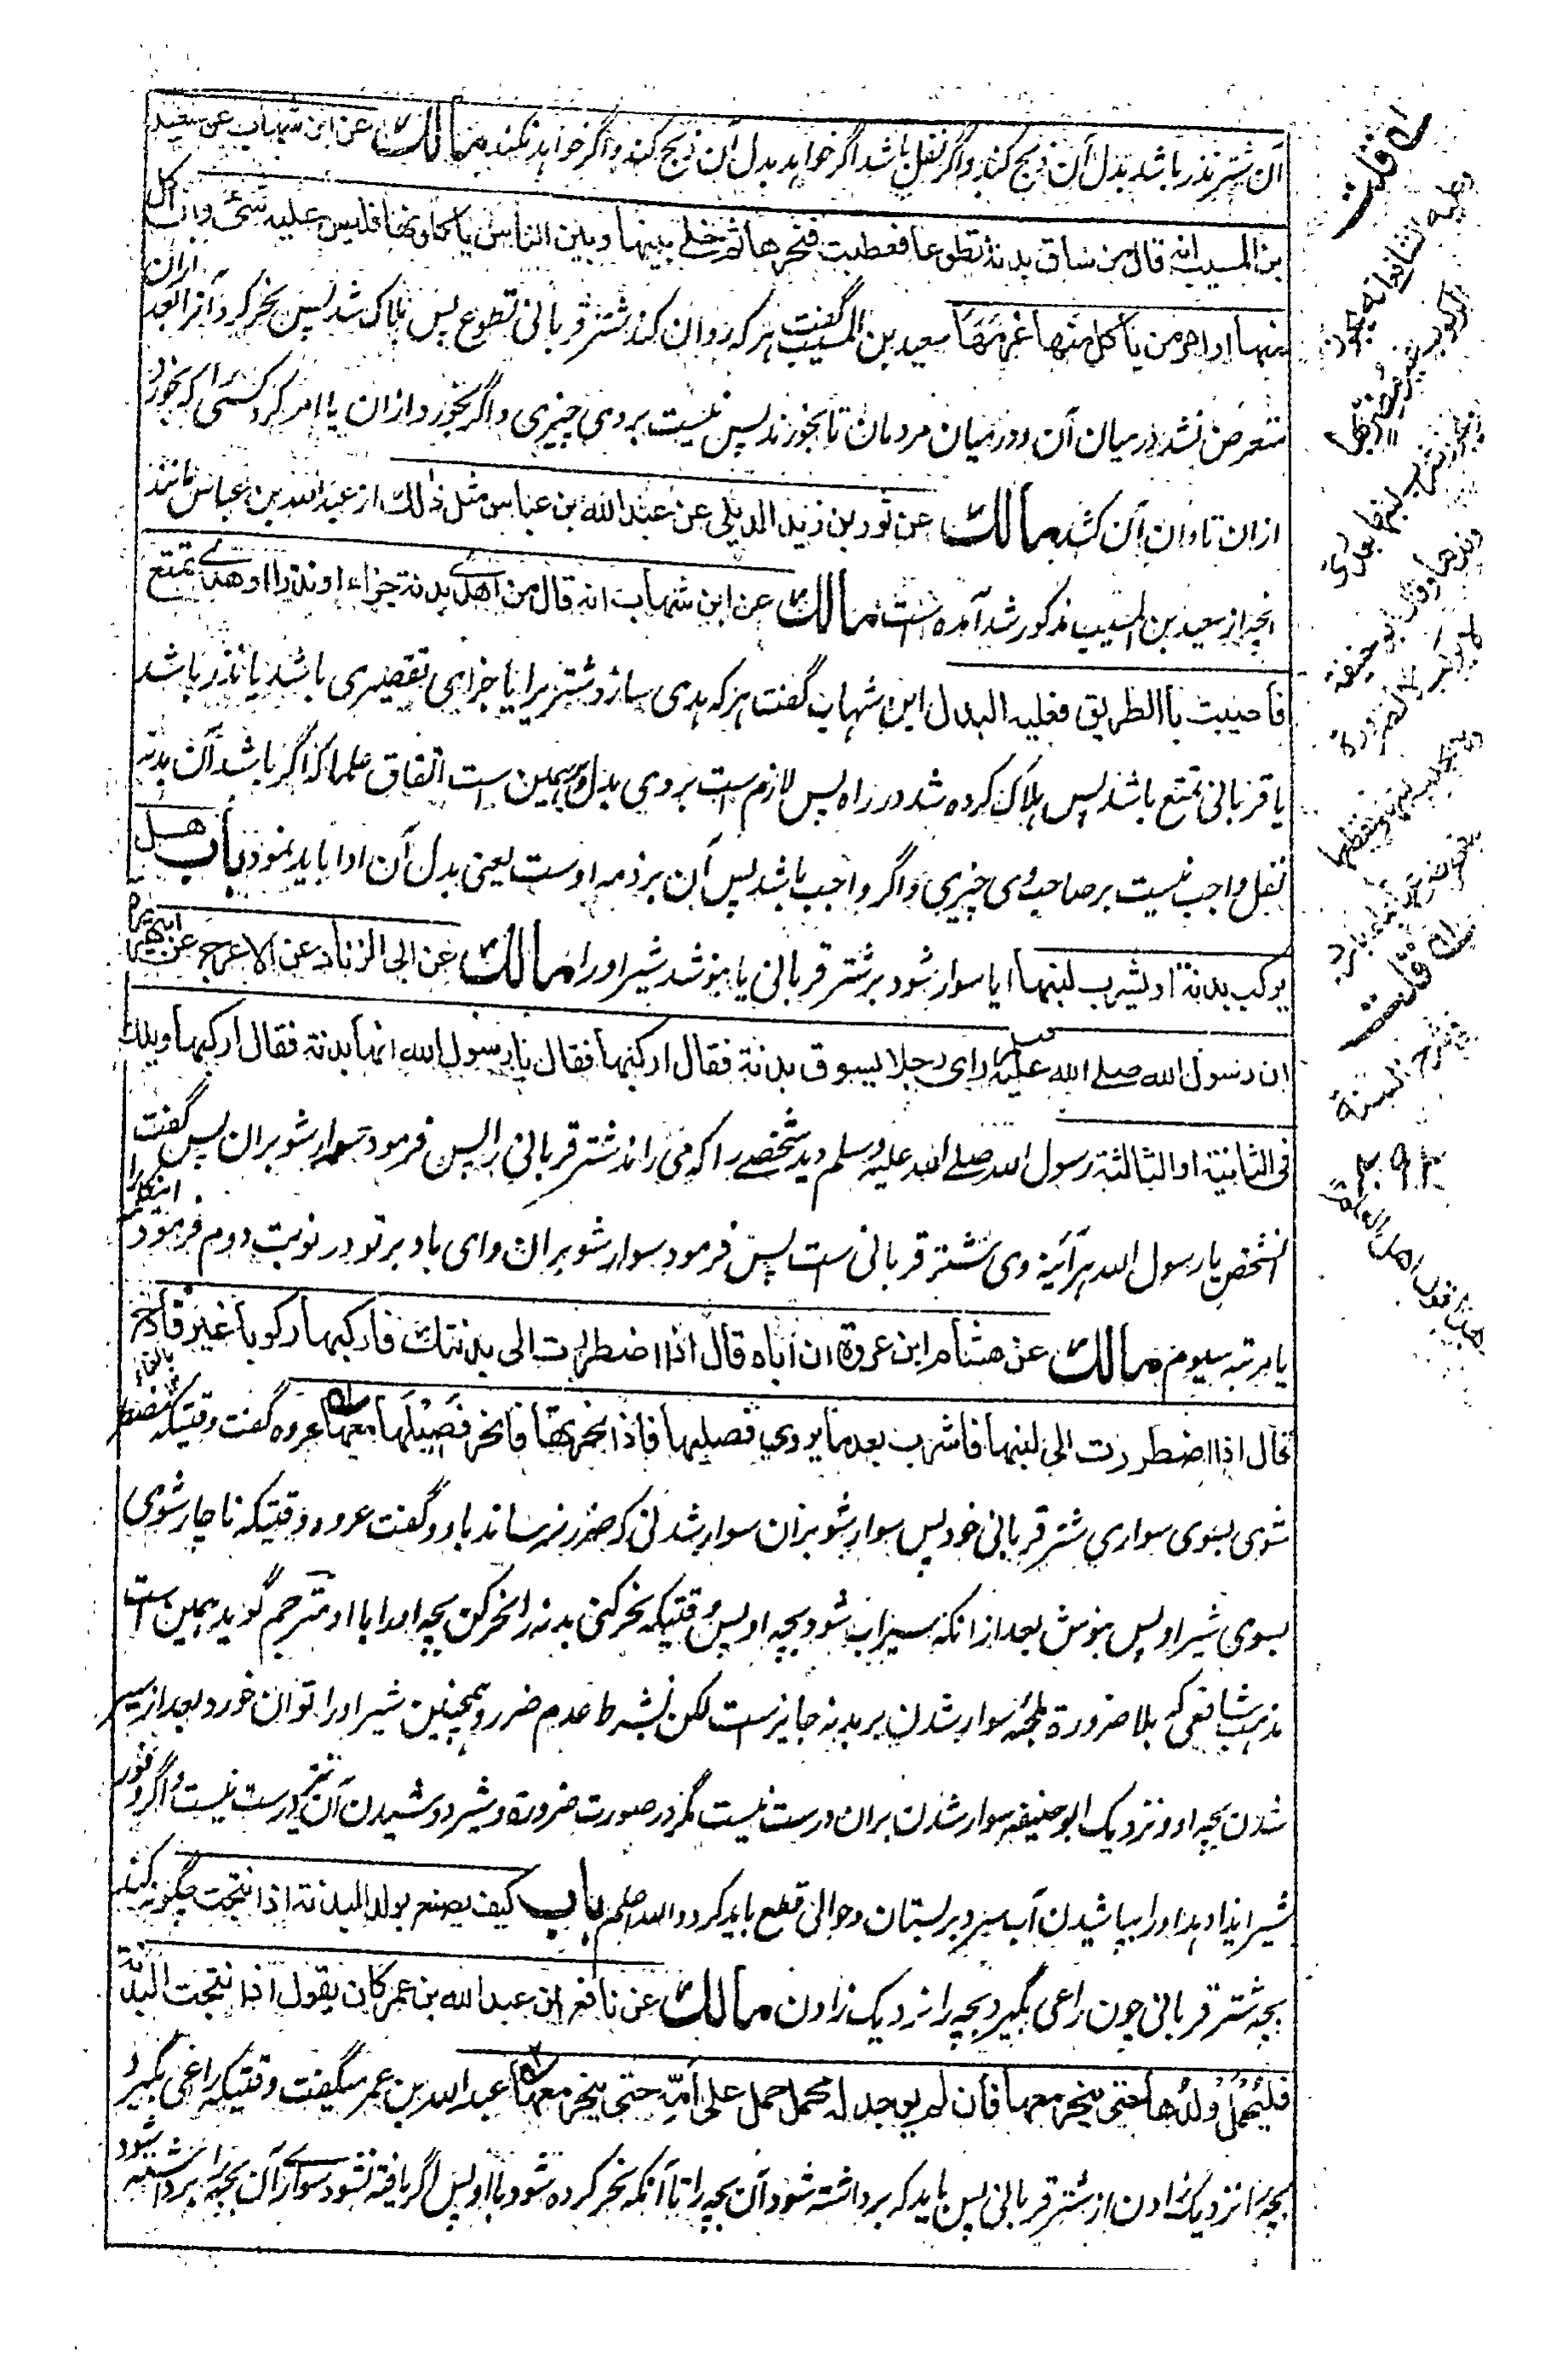 آن شتر نذر باشد بدل آن ذبح کند و اگر نفل باشد اگر خواهد بدل آن ذبح کند و اگر خواهد نکند مالك عن ابن شهاب عن سعيد
بن المسيب انه قال من ساق بدنة تطوعا فعطبت فنحرها ثم خلى بينها وبين الناس ياكلونها فليس عليه شئ وان اكل
منها او امر من ياكل منها غرمها سعید بن المسیب گفت هر که روان کند شتر قربانی تطوع پس هلاک شد پس نحر کرد آنرا بعد ازان
متعرض نشد درمیان آن و درمیان مردمان تا بخورند پس نیست بروی چیزی و اگر بخورد ازان یا امر کرد کسی را که بخورد
ازان تاوان آن کشد مالك عن ثور بن زيد الديلي عن عبد الله بن عباس مثل ذلك از عبدالله بن عباس مانند
آنچه از سعید بن المسیب مذکور شد آمده است مالك عن ابن شهاب انه قال من اهدى بدنة جزاء او نذرا او هدى تمتع
فاصيبت بالطريق فعليه البدل ابن شهاب گفت هر که هدی سازد شتر یرا یا جزای تقصیری باشد یا نذر باشد
یا قربانی تمتع باشد پس هلاک کرده شد در راه پس لازم است بروی بدل و همین ست اتفاق علما که اگر باشد آن بدنه
نفل واجب نیست بر صاحب وی چیزی و اگر واجب باشد پس آن بر ذمه اوست یعنی بدل آن ادا باید نمود باب هل
يركب بدنة او يشرب لبنها ایا سوار شود بر شتر قربانی یا بنوشد شیر او را مالك عن ابى الزناد عن الاعرج عن ابى هريرة
ان رسول الله صلى الله عليه وسلم راى رجلا يسوق بدنة فقال اركبها فقال يا رسول الله انها بدنة فقال اركبها ويلك
فى الثانية او الثالثة رسول الله صلی الله علیه وسلم دید شخصے را که می راند شتر قربانی را پس فرمود سوار شو بران پس گفت
آنشخص یا رسول الله هر آئینه وی شتر قربانی ست پس فرمود سوار شو بران وای باد بر تو در نوبت دوم فرمود اینکلمه را
یا مرتبه سیوم مالك عن هشام ابن عروة ان اباه قال اذا اضطررت الى بدنتك فاركبها ركوبا غير فادح
قال اذا اضطررت الى لبنها فاشرب بعد ما يروى فصيلها فاذا نحرتها فانحر فصيلها معها عروه گفت وقتیکه مضطر
شوی بسوی سواری شتر قربانی خود پس سوار شو بران سوار شدنی که ضرر نرساند باو و گفت عروه وقتیکه ناچار شوی
بسوی شیر او پس بنوش بعد از انکه سیراب شود بچه او پس وقتیکه نحر کنی بدنه را نحر کن بچه او را با او مترجم گوید همین است
مذهب شافعی که بلا ضرورة ملجئه سوار شدن بر بدنه جایزست لکن بشرط عدم ضرر و همچنین شیر او را توان خورد بعد از سیر
شدن بچه او و نزدیک ابو حنیفه سوار شدن بران درست نیست مگر در صورت ضرورة و شیر دوشیدن آن نیز درست نیست و اگر وفور
شیر ایذا دهد او را بپاشیدن آب سرد بر پستان وحوالی قطع باید کرد والله اعلم باب كيف يصنع بولد البدنة اذا نتجت چگونه کند
بچه شتر قربانی چون راعی بگیرد بچه را نزدیک زادن مالك عن نافع ان عبد الله بن عمر كان يقول اذا نتجت البدنة
فليحمل ولدها حتى ينحر معها فان لم يوجد له محمل حمل على امه حتى ينحر معها عبدالله بن عمر میگفت وقتیکه راعی بگیرد
بچه را نزدیک زادن از شتر قربانی پس باید که برداشته شود آن بچه را تا آنکه نحر کرده شود با او پس اگر یافته نشود سواری آن بچه را برداشته شود
قلت
وعليه الشافعى انه يجوز
الركوب غير مضر بها
ويجوز شرب لبنها بعد رى
ولدها وقال ابو حنيفة
لا يركب الا لضرورة
قلت
شرح السنة
۲۹۲
هذا قول اهل العلم